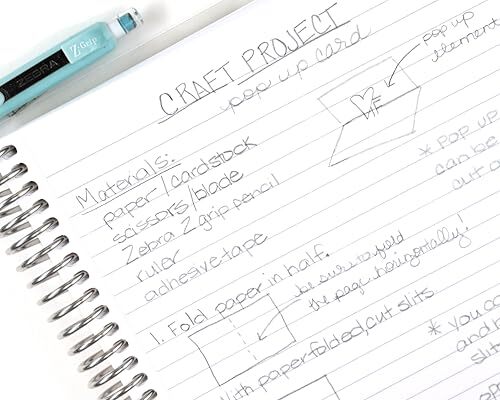 ZEBRA Z-Grip
CRAFT PROJECT
pop up card
pop up
element
Materials:
paper/cardstock
scissors/blade
Zebra Z grip pencil
ruler
adhesive tape
* POP UP
can be
cut o
1. Fold paper in half.
be sure to fold
the page horizontally!
With paper folded, cut slits
* you ca
and
slit